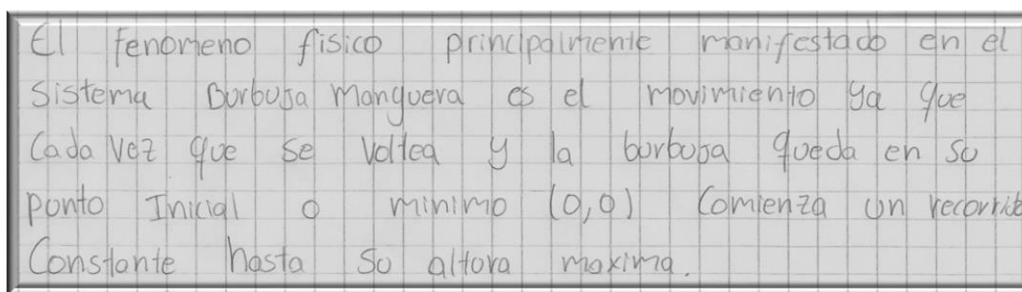 El fenomeno fisico principalmente manifestado en el
Sistema Burbuja Manguera es el movimiento ya que
Cada vez que se voltea y la burbuja queda en su
punto Inicial o minimo (0,0) Comienza un recorrido
Constante hasta su altura maxima.